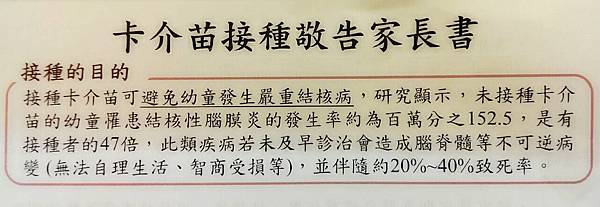 卡介苗接種敬告家長書
接種的目的
接種卡介苗可避免幼童發生嚴重結核病，研究顯示，未接種卡介
苗的幼童罹患結核性腦膜炎的發生率約為百萬分之152.5，是有
接種者的47倍，此類疾病若未及早診治會造成腦脊髓等不可逆病
變(無法自理生活、智商受損等)，並伴隨約20%~40%致死率。